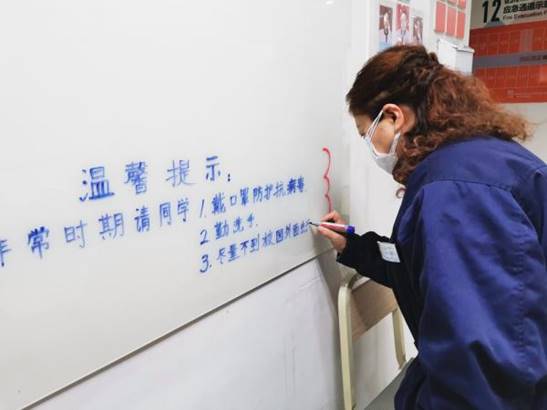 温馨提示：
非常时期请同学 1.戴口罩防护抗病毒
2.勤洗手.
3.尽量不到校园外
12
应急通道示
Fire Evacuation